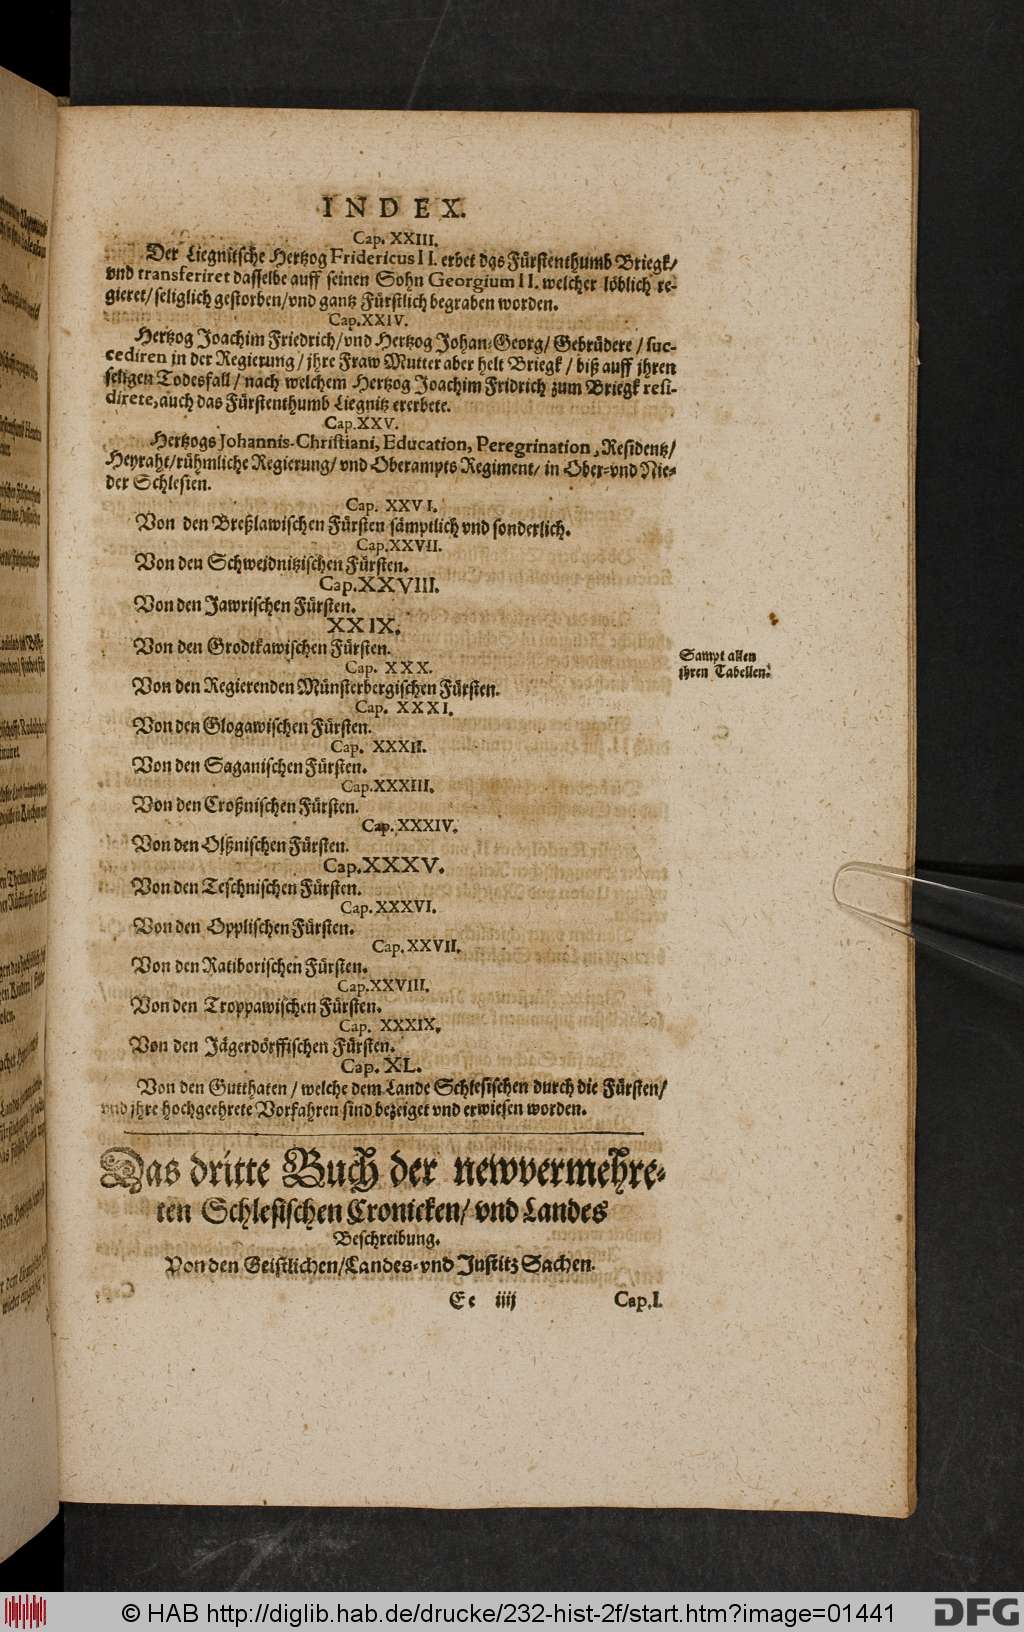 INDEX.
Cap. XXIII.
Der Liegnitsche Hertzog Fridericus II. erbet das Fürstenthumb Briegk/
vnd transferiret dasselbe auff seinen Sohn Georgium II. welcher löblich re-
gieret/ seliglich gestorben/ vnd gantz Fürstlich begraben worden.
Cap. XXIV.
Hertzog Joachim Friedrich/ vnd Hertzog Johan-Georg/ Gebrüdere / suc-
cediren in der Regierung / jhre Fraw Mutter aber helt Briegk / biß auff jhren
seligen Todesfall / nach welchem Hertzog Joachim Fridrich zum Briegk resi-
direte, auch das Fürstenthumb Liegnitz ererbete.
Cap. XXV.
Hertzogs Johannis-Christiani, Education, Peregrination, Residentz/
Heyraht/ rühmliche Regierung/ vnd Oberampts Regiment/ in Ober-vnd Nie-
der Schlesien.
Cap. XXVI.
Von den Breßlawischen Fürsten sämptlich vnd sonderlich.
Cap. XXVII.
Von den Schweidnitzischen Fürsten.
Cap. XXVIII.
Von den Jawrischen Fürsten.
XXIX.
Von den Grodtkawischen Fürsten.
Sampt allen
jhren Tabellen.
Cap. XXX.
Von den Regierenden Münsterbergischen Fürsten.
Cap. XXXI.
Von den Glogawischen Fürsten.
Cap. XXXII.
Von den Saganischen Fürsten.
Cap. XXXIII.
Von den Croßnischen Fürsten.
Cap. XXXIV.
Von den Olßnischen Fürsten.
Cap. XXXV.
Von den Teschnischen Fürsten.
Cap. XXXVI.
Von den Opplischen Fürsten.
Cap. XXVII.
Von den Ratiborischen Fürsten.
Cap. XXVIII.
Von den Troppawischen Fürsten.
Cap. XXXIX.
Von den Jägerdörffischen Fürsten.
Cap. XL.
Von den Gutthaten / welche dem Lande Schlesischen durch die Fürsten/
vnd jhre hochgeehrete Vorfahren sind bezeiget vnd erwiesen worden.
Das dritte Buch der newvermehre-
ten Schlesischen Cronicken/ vnd Landes
Beschreibung.
Von den Geistlichen/ Landes-vnd Justitz Sachen.
Ee iiij Cap. I.
© HAB http://diglib.hab.de/drucke/232-hist-2f/start.htm?image=01441
DFG